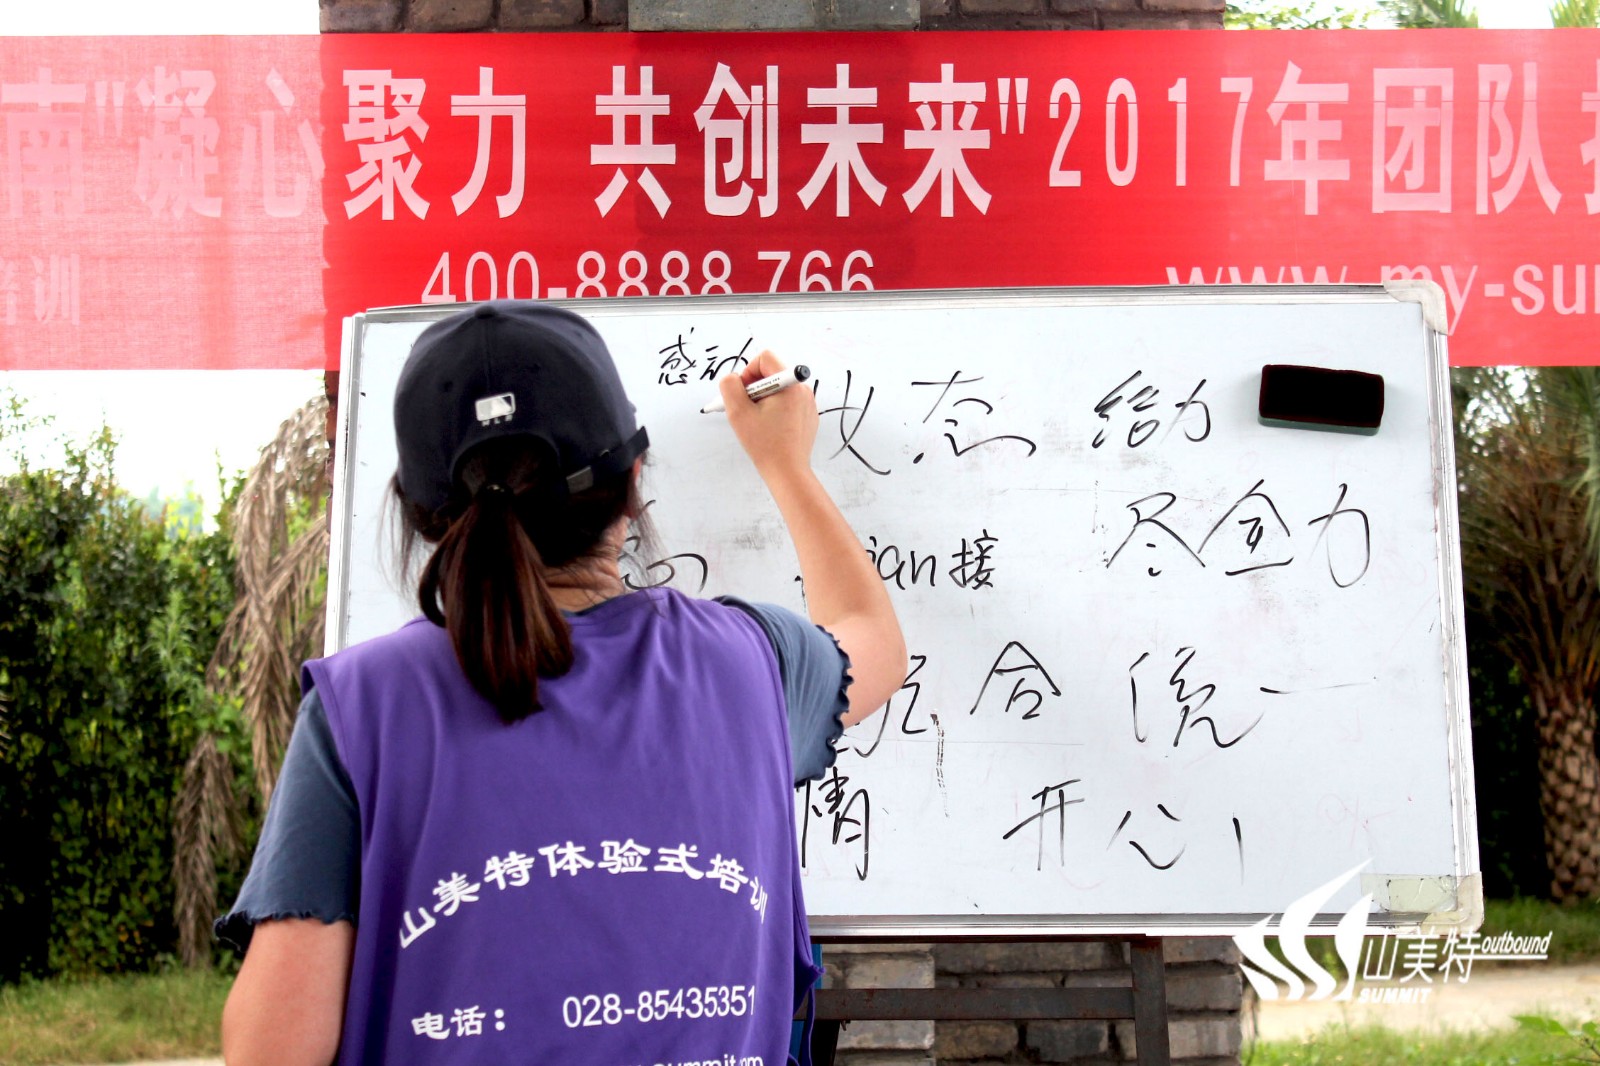 南"凝心聚力 共创未来"2017年团队
培训 400-8888 766 www.my-su
感动 状态 给力
尽全力
ian接
合 统一
情 开心
山美特体验式培训
电话： 028-85435351
山美特outbound
SUMMIT